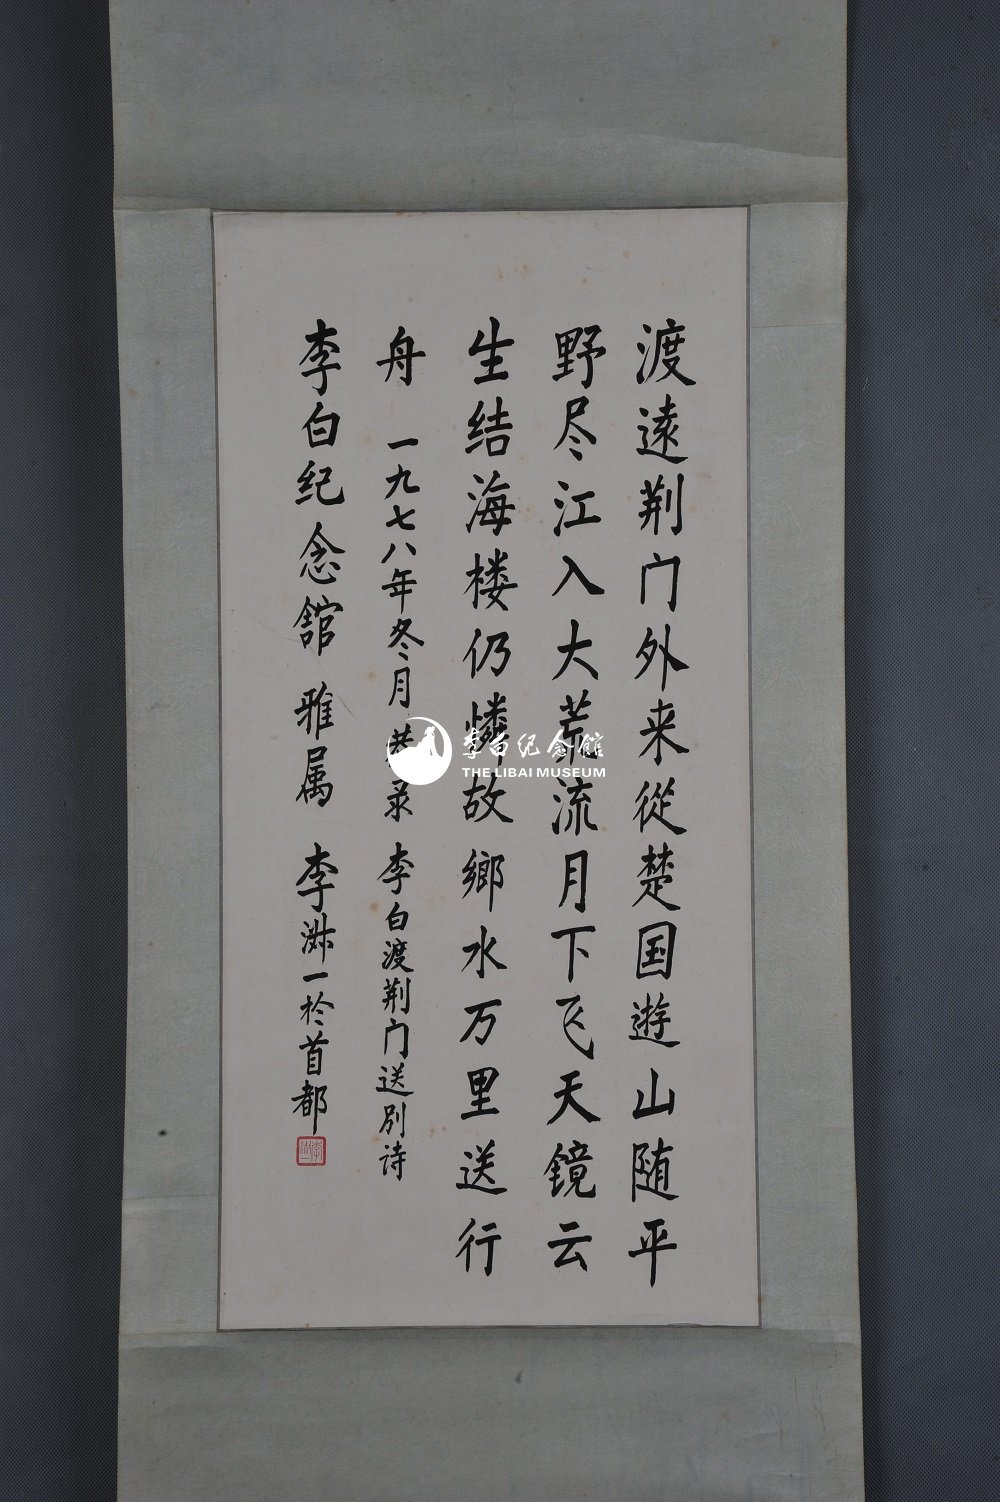 渡遠荆门外来從楚国遊山随平
野尽江入大荒流月下飞天镜云
生结海楼仍憐故鄉水万里送行
舟 一九七八年冬月恭录 李白渡荆门送别诗
李白纪念舘 雅属 李淑一於首都
李白纪念馆
THE LIBAI MUSEUM